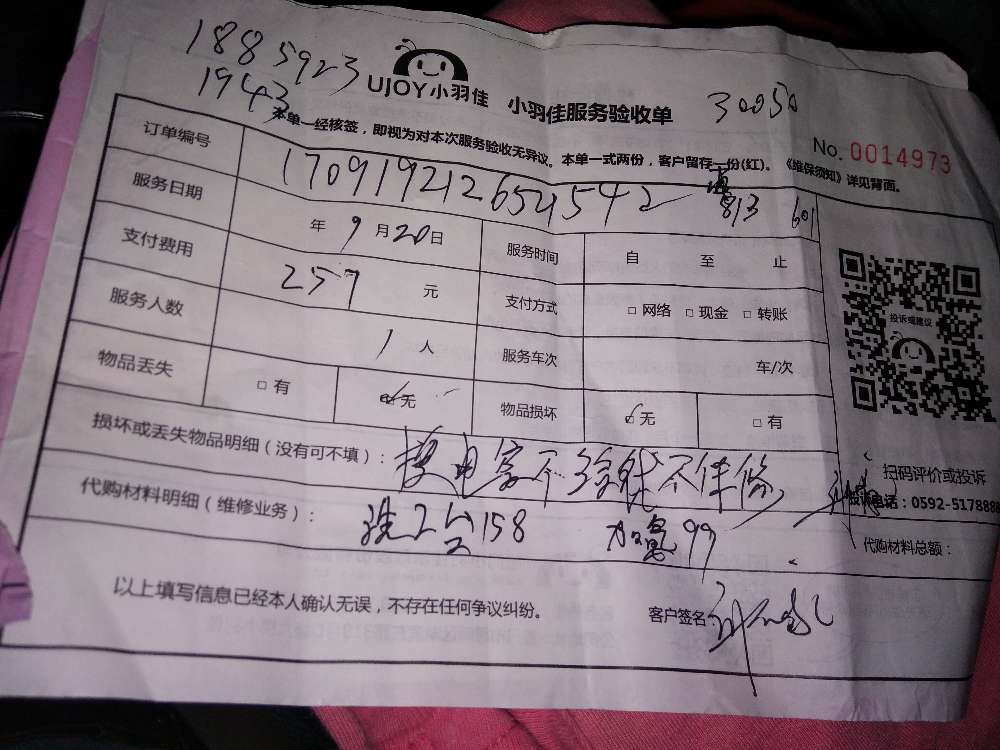 1885923
1943
UJOY小羽佳 小羽佳服务验收单 30050
本单一经核签，即视为对本次服务验收无异议。本单一式两份，客户留存一份(红)。《维保须知》详见背面。
No. 0014973
订单编号 813 601
服务日期 年 9 月 20 日 服务时间 自 至 止
支付费用 257 元 支付方式 □ 网络 □ 现金 □ 转账
服务人数 1 人 服务车次 车/次
物品丢失 □ 有 ☑ 无 物品损坏 ☑ 无 □ 有
投诉或建议
损坏或丢失物品明细（没有可不填）：
扫码评价或投诉
投诉电话：0592-5178888
代购材料明细（维修业务）： 洗2台158 99
代购材料总额：
以上填写信息已经本人确认无误，不存在任何争议纠纷。
客户签名：